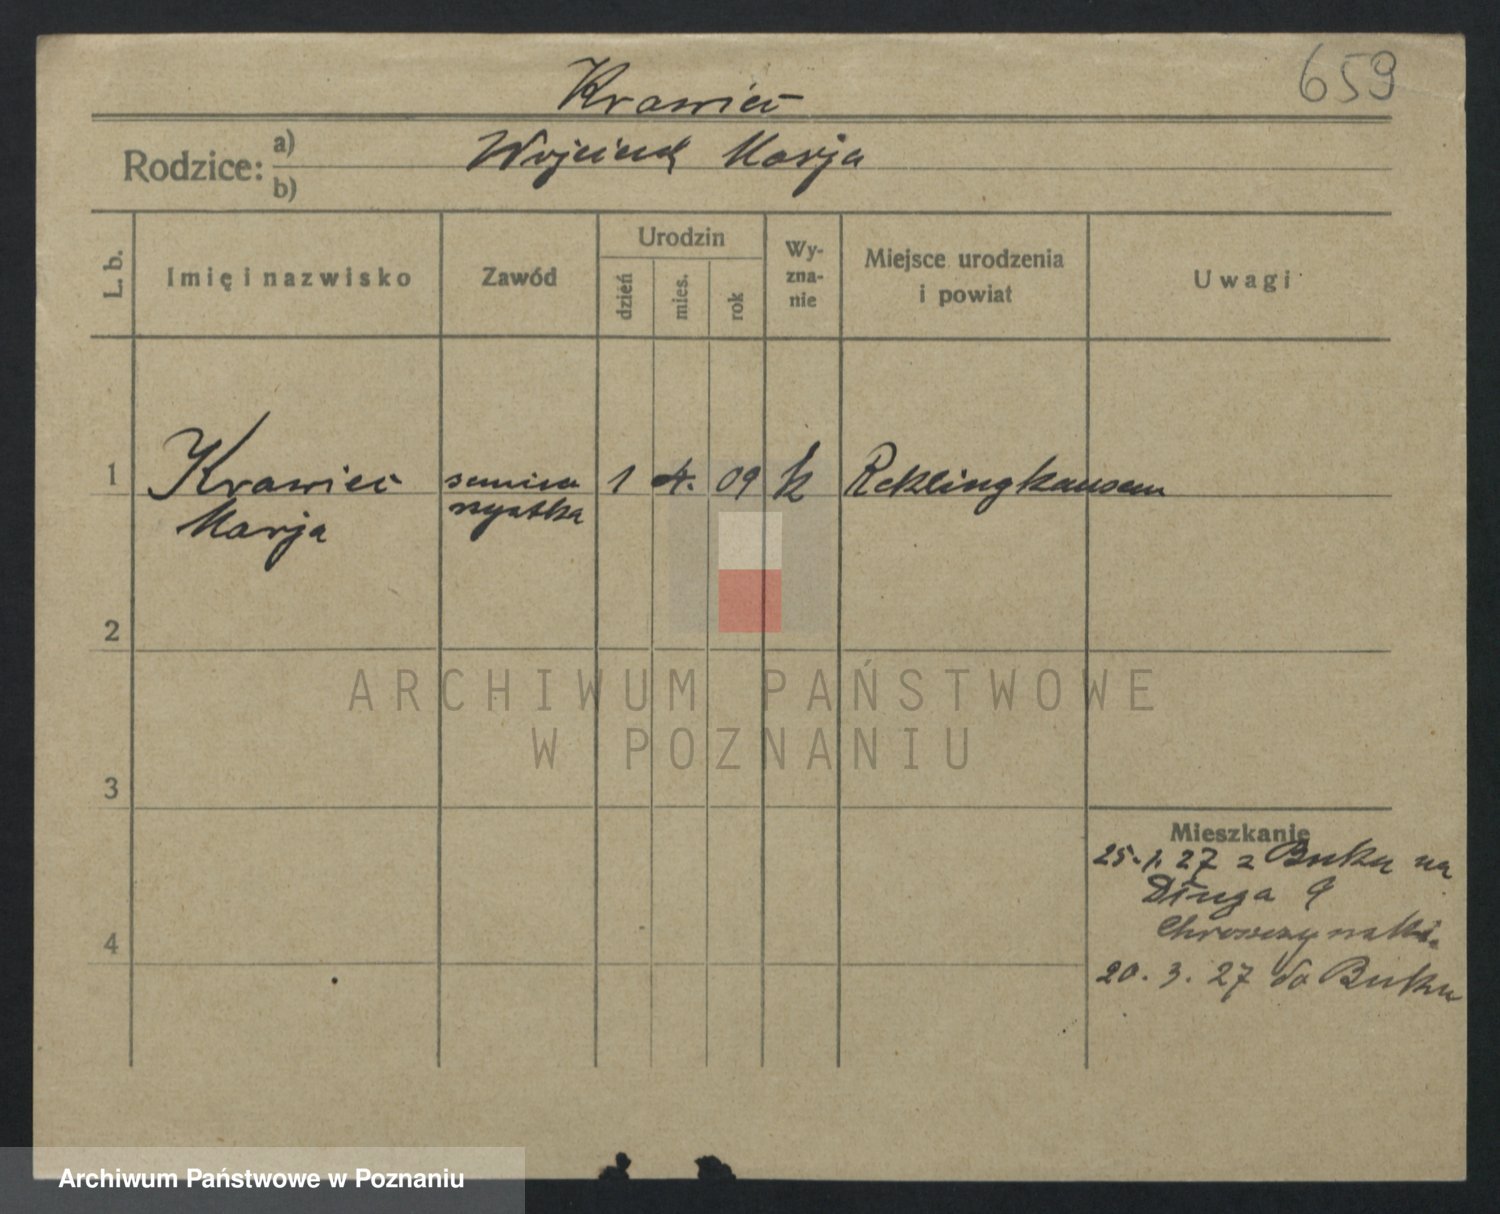 659
Krawiec
Rodzice: a) Wojciech Marja
b)
L. b.
Imię i nazwisko
Zawód
Urodzin
dzień
mies.
rok
Wy-
zna-
nie
Miejsce urodzenia
i powiat
Uwagi
1
Krawiec
Marja
semina
rzystka
1 4. 09 k Reklinghausen
2
3
4
Mieszkanie
25.1.27 z Buku na
Długa 9
20.3.27 do Buku
ARCHIWUM PAŃSTWOWE
W POZNANIU
Archiwum Państwowe w Poznaniu